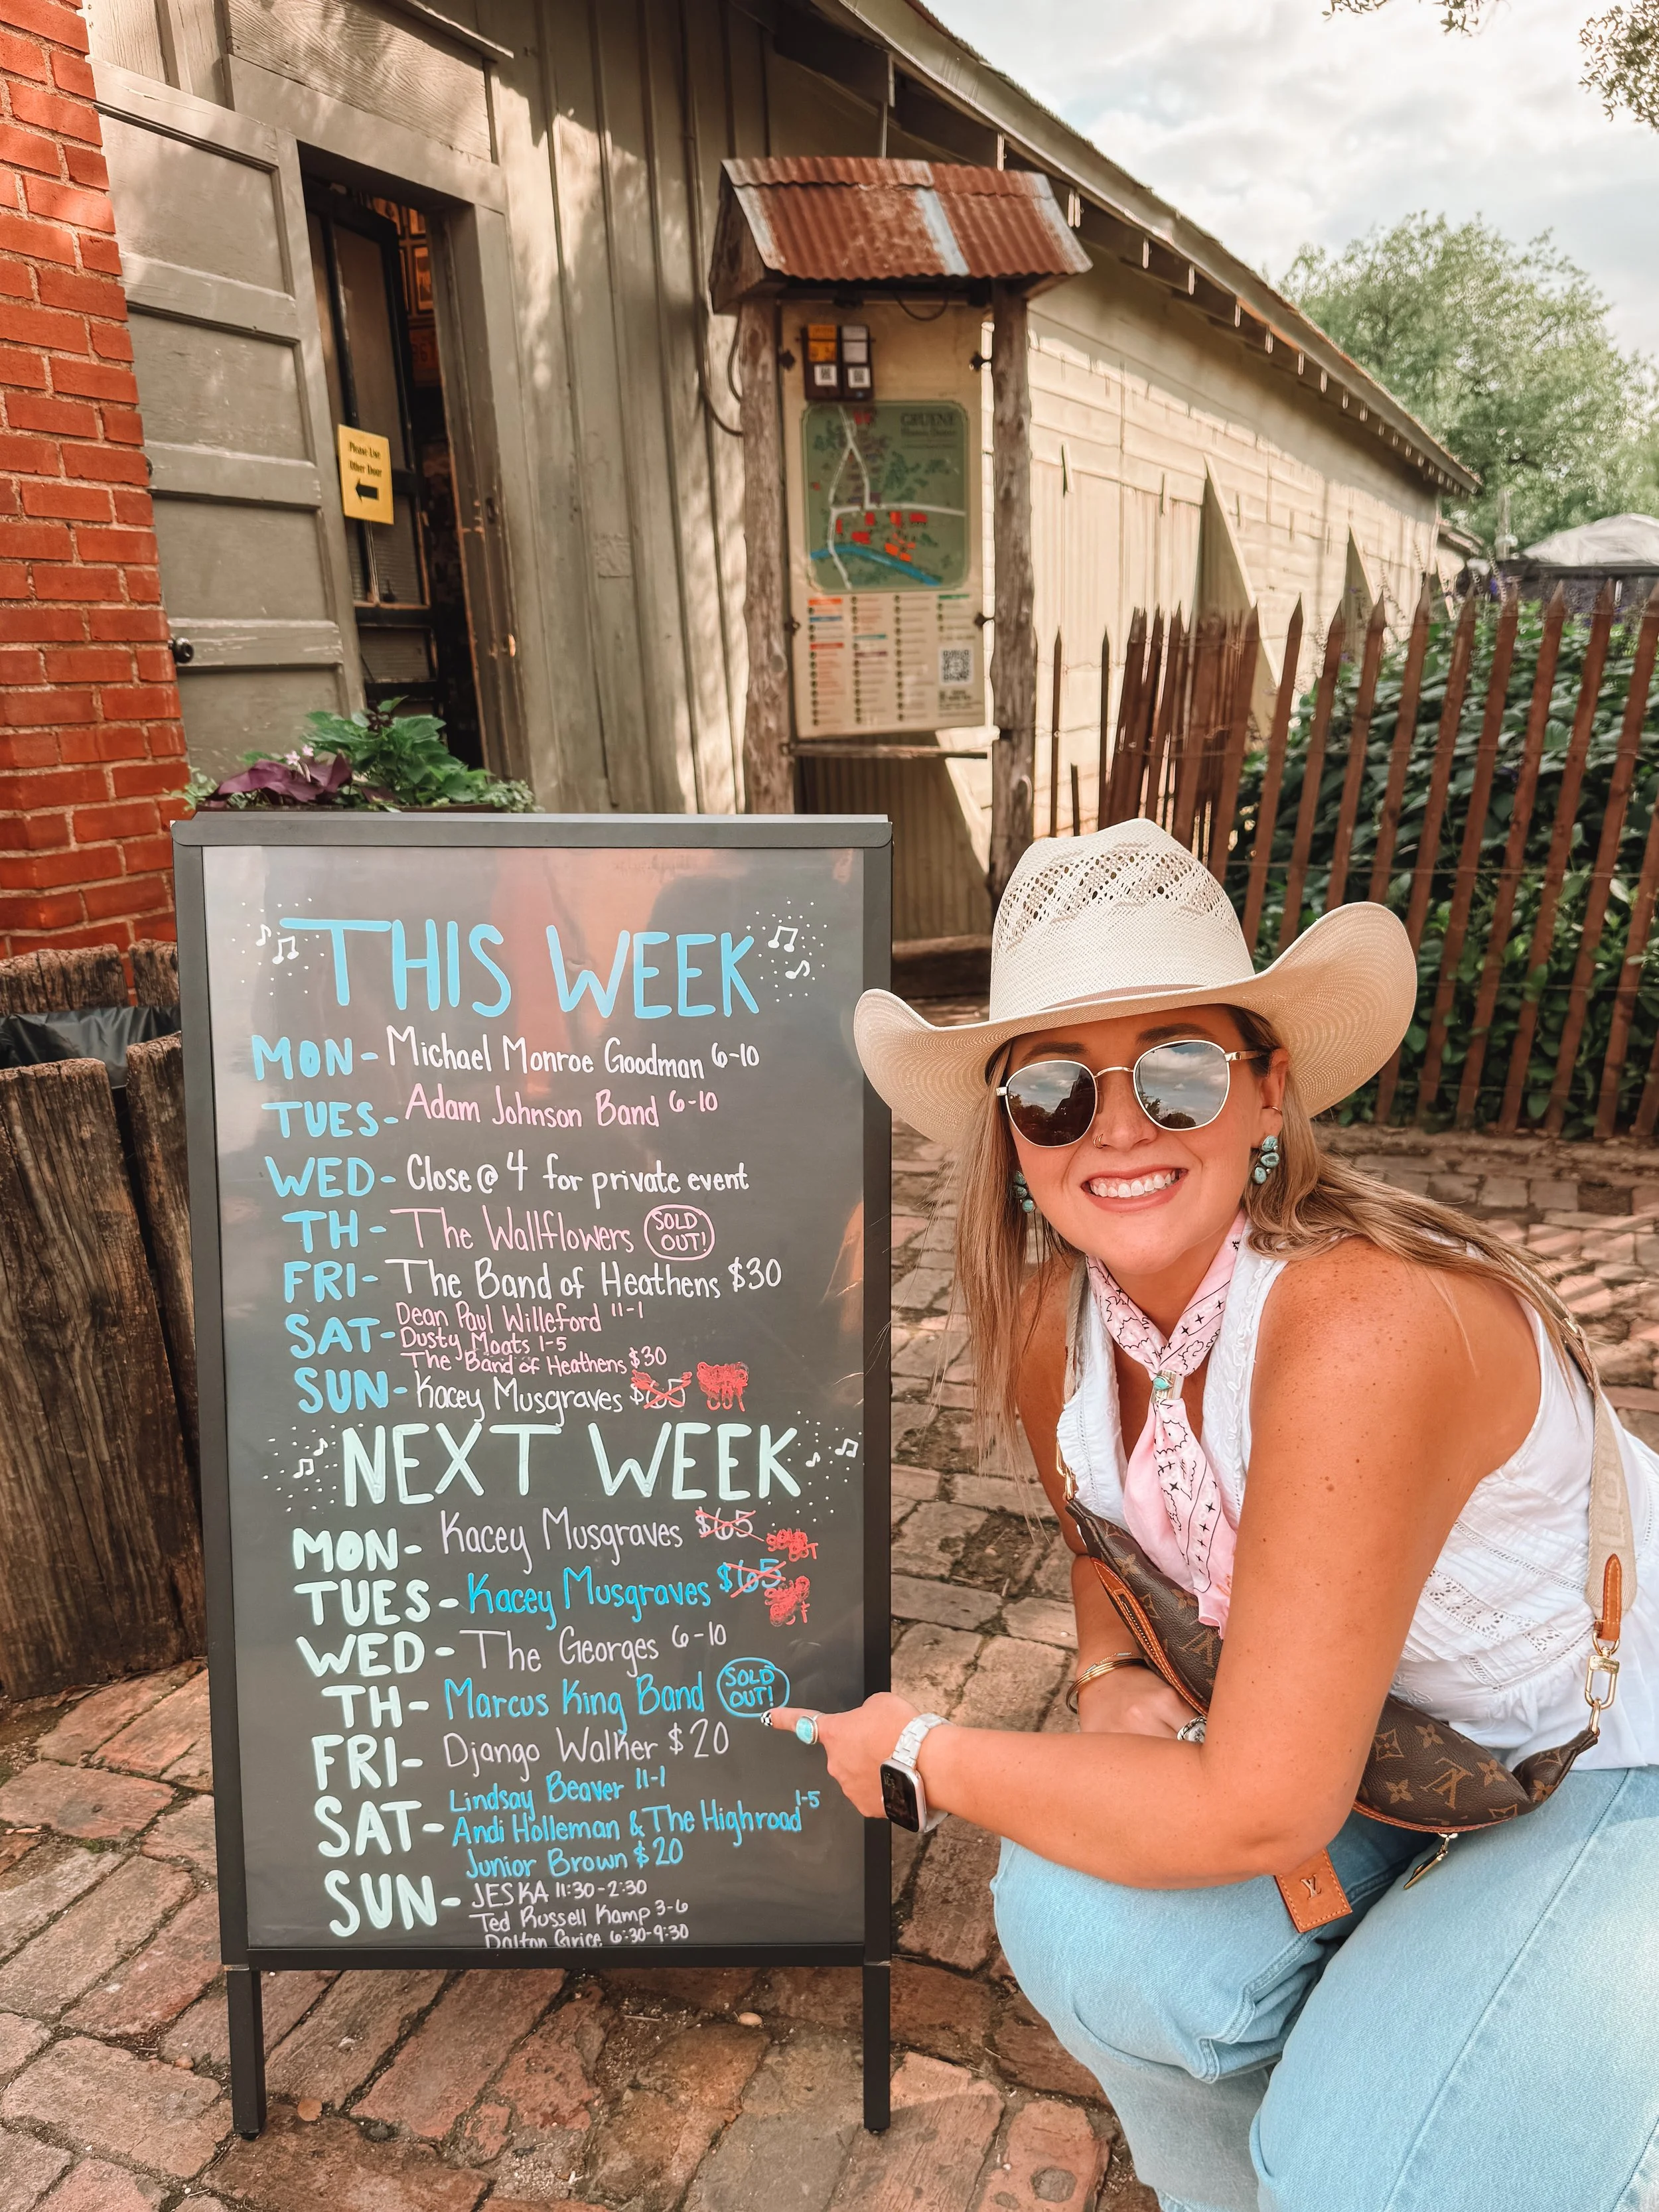 Please Use
Other Door
GRUENE
THIS WEEK
MON- Michael Monroe Goodman 6-10
TUES- Adam Johnson Band 6-10
WED- Close @ 4 for private event
TH- The Wallflowers SOLD OUT!
FRI- The Band of Heathens $30
SAT- Dean Paul Willeford 11-1
Dusty Moats 1-5
The Band of Heathens $30
SUN- Kacey Musgraves $65 OUT
NEXT WEEK
MON- Kacey Musgraves $65 SOLD OUT
TUES- Kacey Musgraves $65
WED- The Georges 6-10
TH- Marcus King Band SOLD OUT!
FRI- Django Walker $20
SAT- Lindsay Beaver 11-1
Andi Holleman & The Highroad 1-5
Junior Brown $20
SUN- JESKA 11:30-2:30
Ted Russell Kamp 3-6
Dalton Grice 6:30-9:30
LV